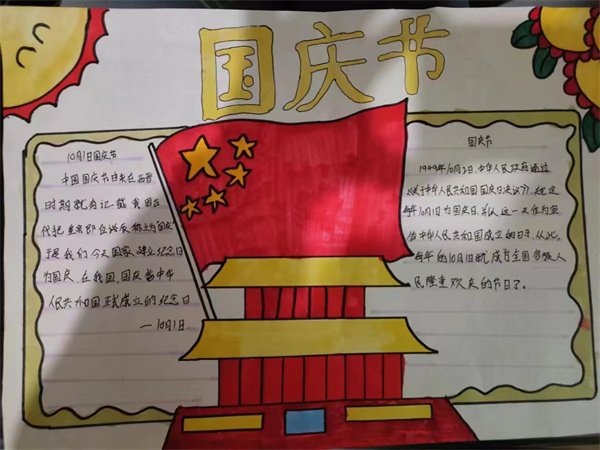 国庆节
10月1日国庆节
中国国庆节日来在西晋
时期就有记载 我国在
代把皇帝即位诞辰称为国庆
于是我们今天国家建立纪念日
为国庆 在我国 国庆当中华
人民共和国正式成立的纪念日
—10月1日
国庆节
1949年10月2日,中华人民政府通过
《关于中华人民共和国国庆日决议》,规定
每年10月1日为国庆日,并以这一天作为宣
告中华人民共和国成立的日子,从此,
每年的10月1日就成为全国各族人
民隆重欢庆的节日了。